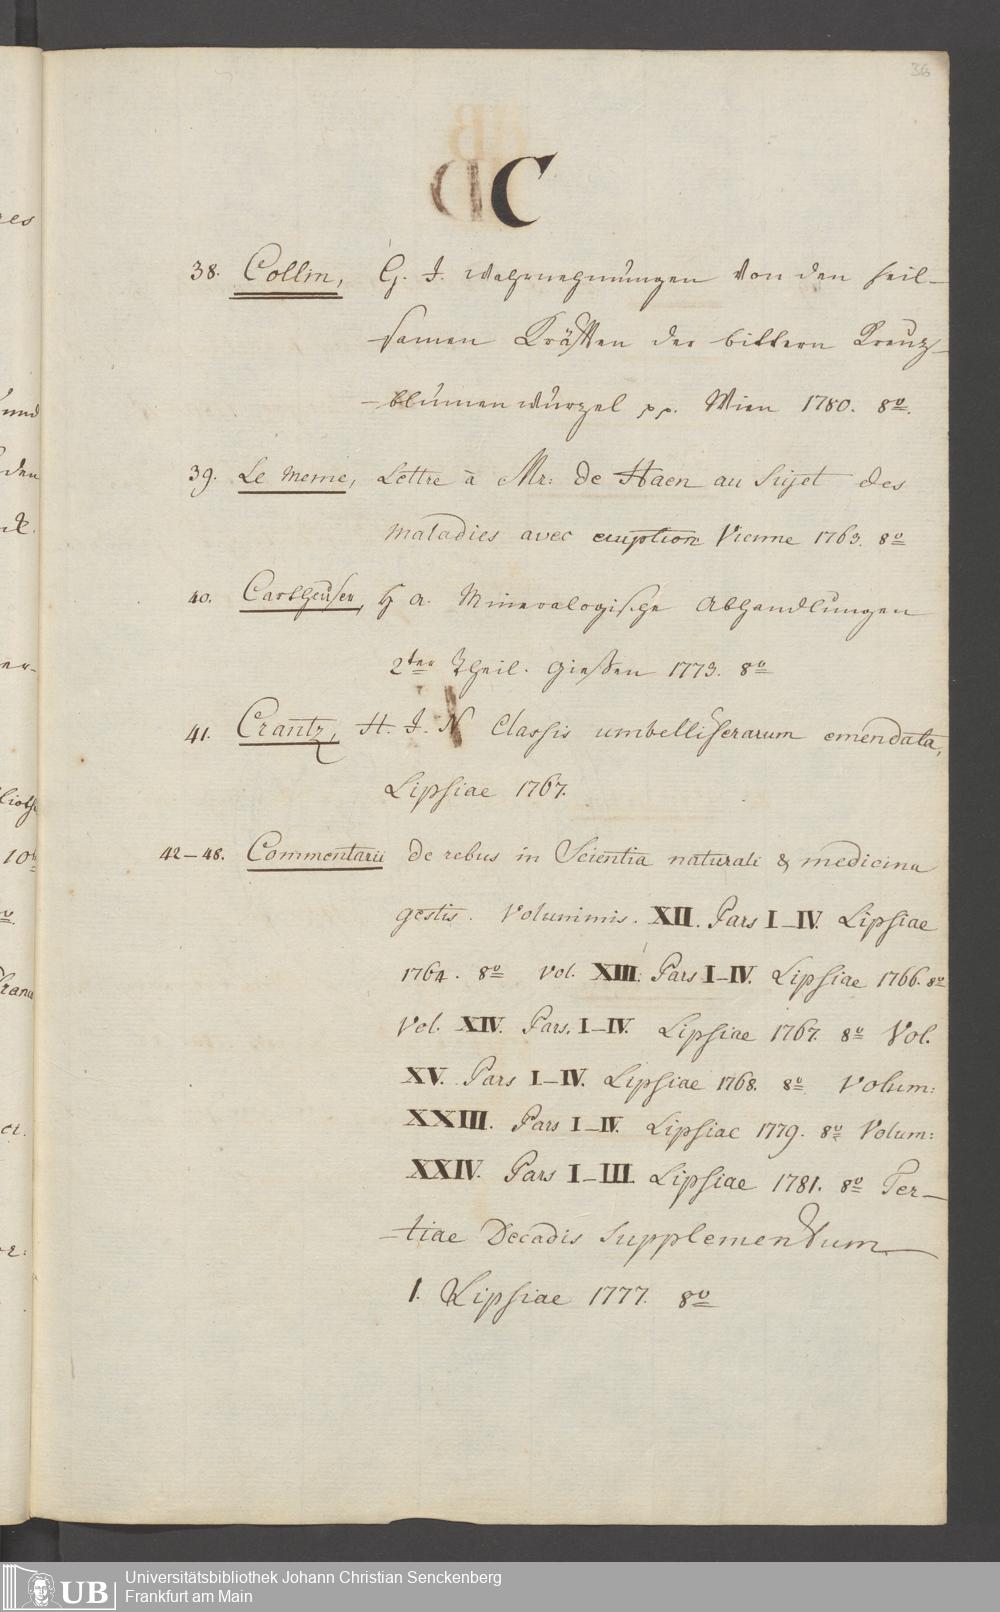 36
C
38. Collin, H. J. Wahrnehmungen von den heil-
samen Kräften der bittern Kreuz-
-blumenwurzel pp. Wien 1780. 8º.
39. Le meme, Lettre à Mr: de Haen au Sujet des
maladies avec eruption Vienne 1763. 8º
40. Cartheuser, F A. Mineralogische Abhandlungen
2ter Theil. Gießen 1773. 8º
41. Crantz, H. J. N Classis umbelliferarum emendata,
Lipsiae 1767.
42–48. Commentarii de rebus in Scientia naturali & medicina
gestis. Voluminis. XII. Pars I–IV. Lipsiae
1764. 8º vol. XIII. Pars I–IV. Lipsiae 1766. 8º
Vol. XIV. Pars. I–IV. Lipsiae 1767. 8º Vol.
XV. Pars I–IV. Lipsiae 1768. 8º Volum:
XXIII. Pars I–IV. Lipsiae 1779. 8º Volum:
XXIV. Pars I–III. Lipsiae 1781. 8º Ter-
-tiae Decadis Supplementum
1. Lipsiae 1777. 8º
UB Universitätsbibliothek Johann Christian Senckenberg
Frankfurt am Main